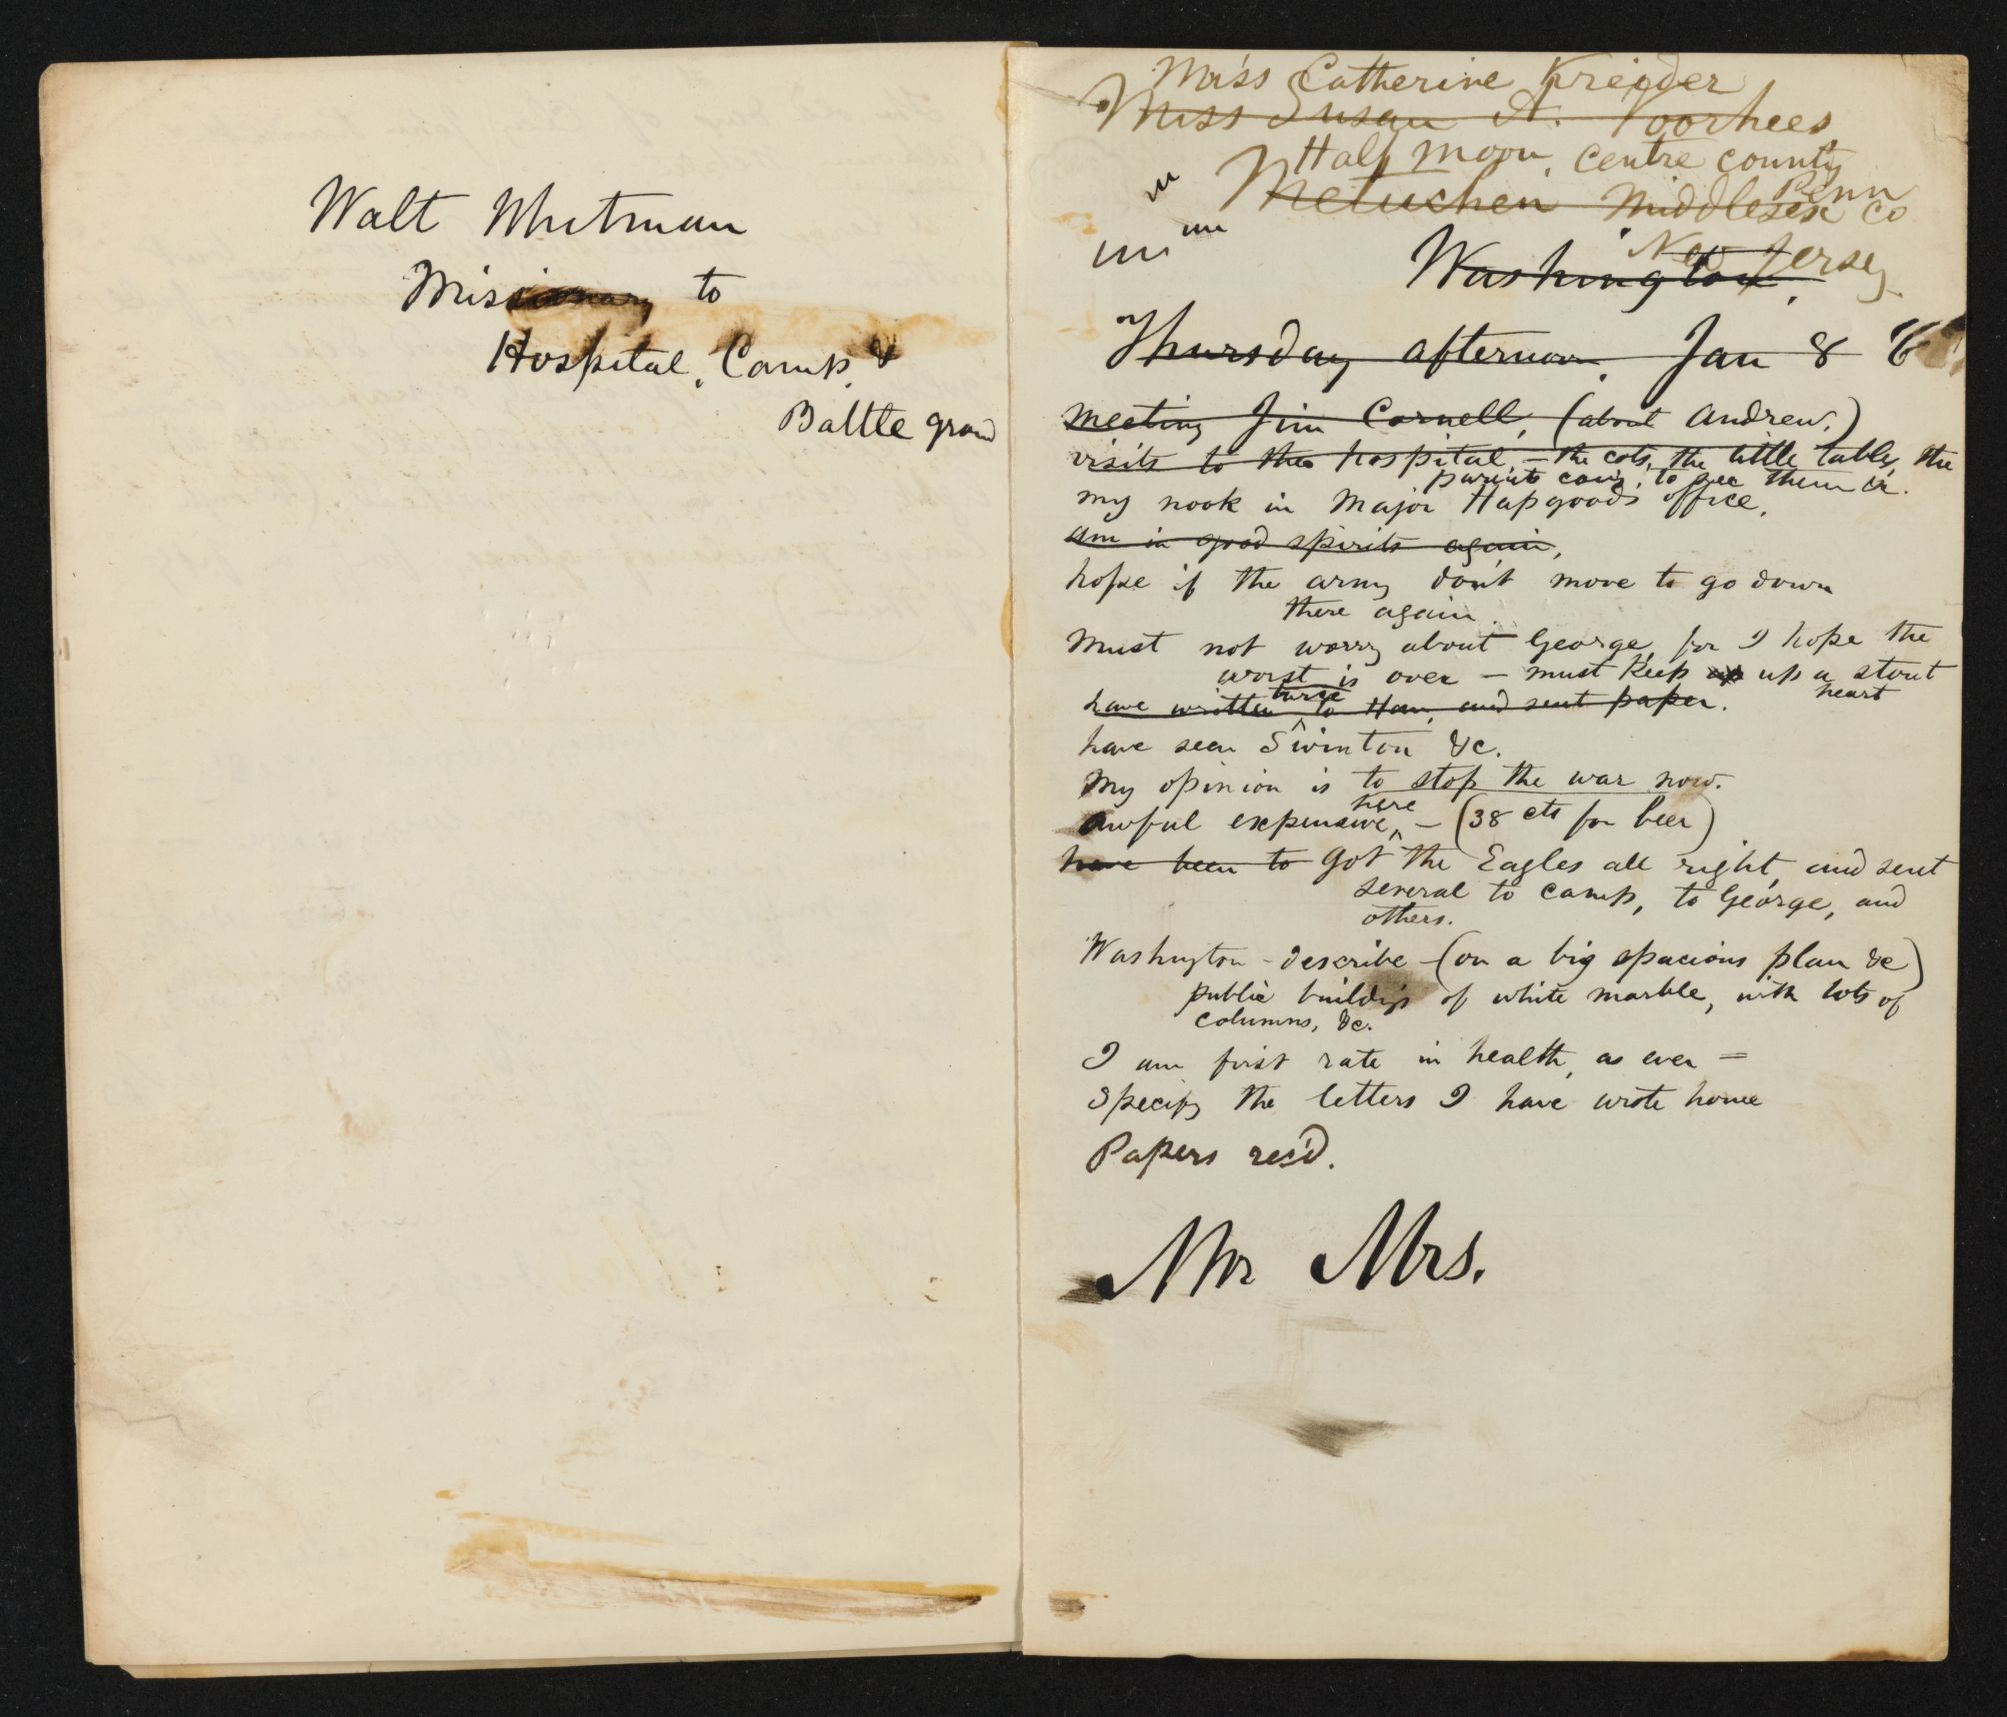 Walt Whitman
Missionary to
Hospital, Camp, &
Battle groud
Miss Catherine Kreider
Miss Susan A. Voorhees
Half Moon, Centre county
Penn
Metuchen Middlesex Co
New Jersey
Washington,
Thursday afternoon, Jan 8
meeting Jim Cornell, (about Andrew.)
visits to the hospital, – the cots, the little table, the
parents coming to see them &c.
my nook in Major Hapgood's office,
am in good spirits again,
hope if the army don't move to go down
there again.
Must not worry about George, for I hope the
worst is over – must keep up up a stout
heart
have written twice to Han, and sent paper.
have seen Swinton &c.
My opinion is to stop the war now.
Awful expensive here – (38 cts for beer)
have been to Got the Eagles all right, and sent
several to camp, to George, and
others.
Washington – describe – (on a big spacious plan &c)
public build'gs of white marble, with lots of
columns, &c.
I am first rate in health, as ever –
Specify the letters I have wrote home
Papers rec'd.
Mr Mrs.